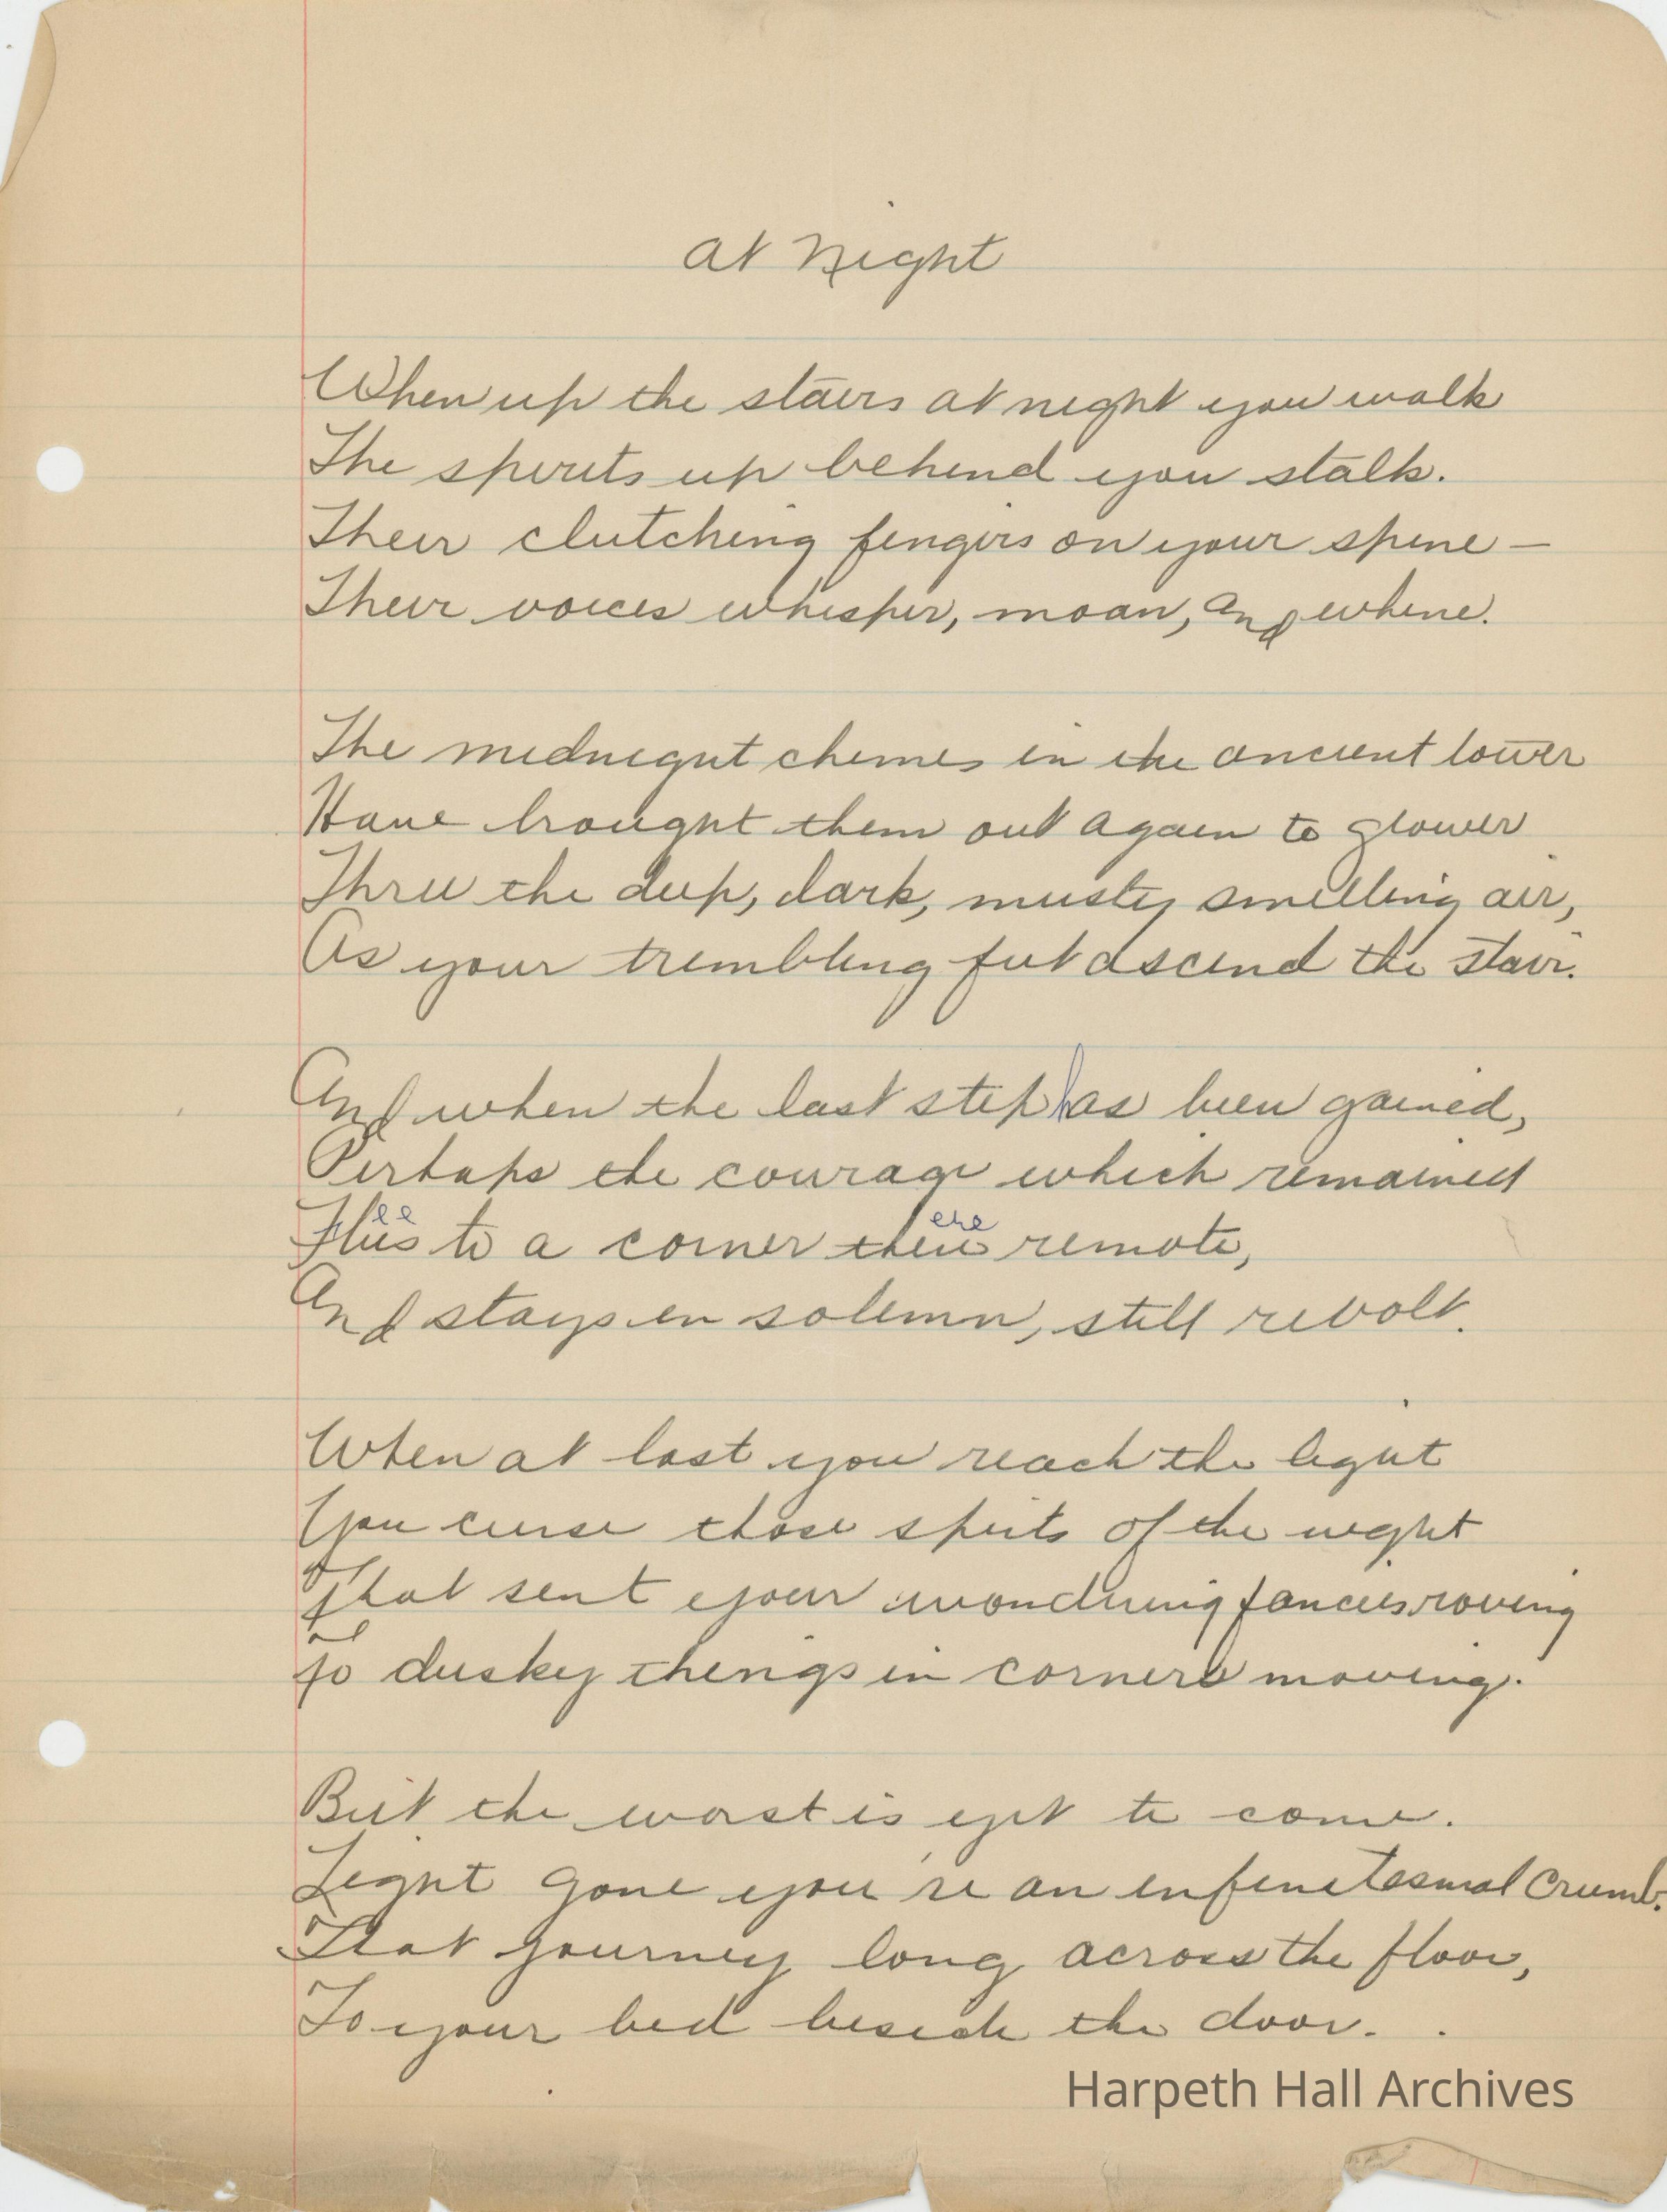 At Night
When up the stairs at night you walk
The spirits up behind you stalk.
Their clutching fingers on your spine —
Their voices whisper, moan, and whine.
The midnight chimes in the ancient tower
Have brought them out again to glower
Thru the deep, dark, musty smelling air,
As your trembling feet ascend the stair.
And when the last step has been gained,
Perhaps the courage which remained
ee ere
Flees to a corner there remote,
And stays in solemn, still revolt.
When at last you reach the light
You curse those spirits of the night
That sent your wondring fancies roving
To dusky things in corners moving.
But the worst is yet to come.
Light gone you're an infinitesmal crumb.
That journey long across the floor,
To your bed beside the door.
Harpeth Hall Archives